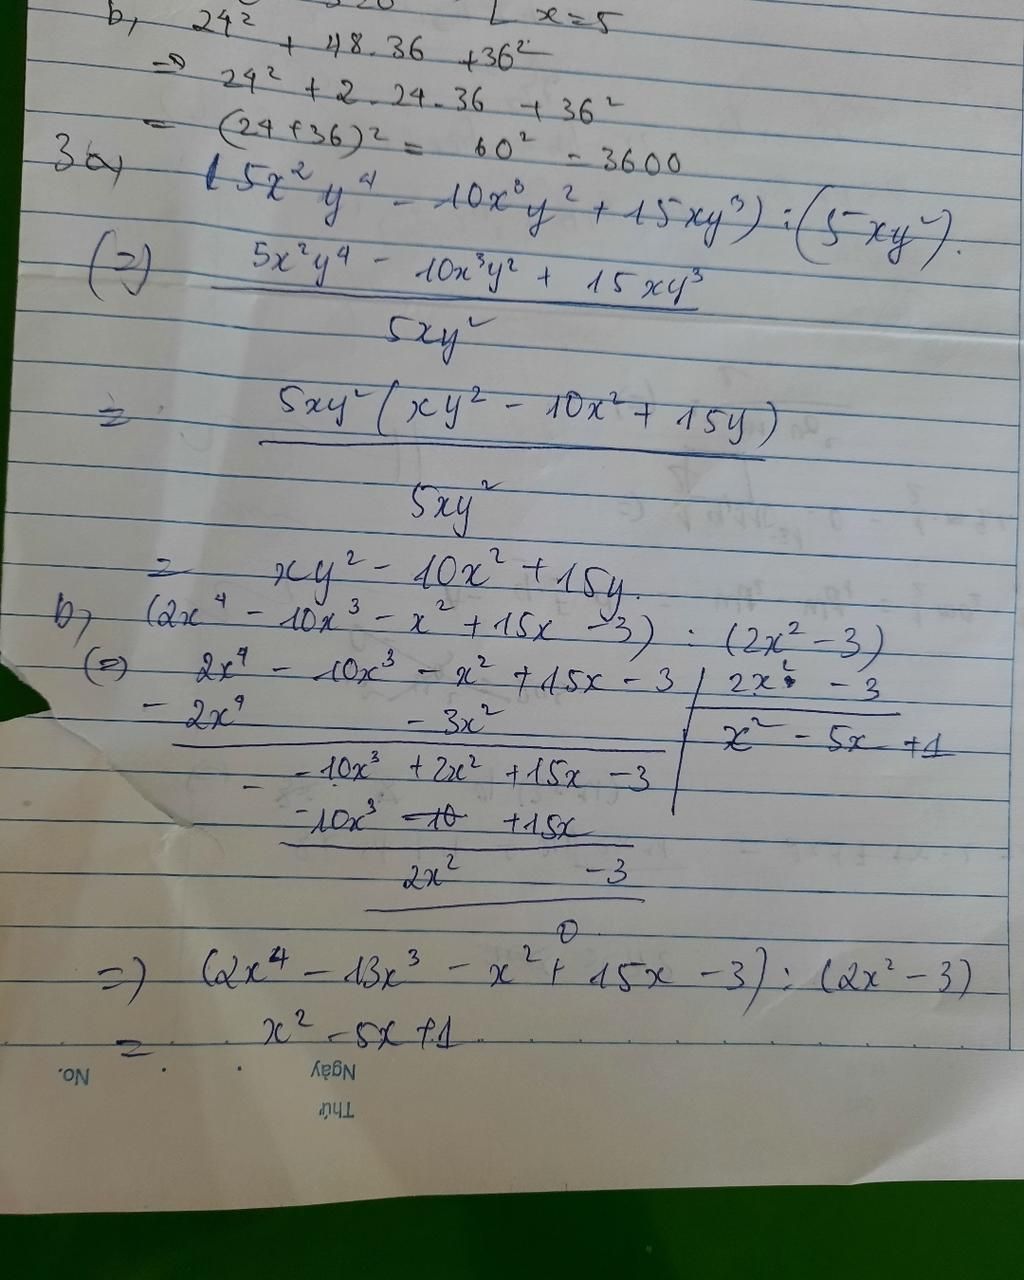 b, 24² + 48.36 + 36²
=> 24² + 2.24.36 + 36²
= (24+36)² = 60² = 3600
x = 5
3a, (5x²y⁴ - 10x³y² + 15xy³) : (5xy²).
(=) 5x²y⁴ - 10x³y² + 15xy³
5xy²
= 5xy² (xy² - 10x² + 15y)
5xy²
= xy² - 10x² + 15y.
b, (2x⁴ - 10x³ - x² + 15x - 3) : (2x² - 3)
(=) 2x⁴ - 10x³ - x² + 15x - 3 | 2x² - 3
- 2x⁴ - 3x² | x² - 5x + 1
- 10x³ + 2x² + 15x - 3
- -10x³ + 15x
2x² - 3
0
=) (2x⁴ - 13x³ - x² + 15x - 3) : (2x² - 3)
= x² - 5x + 1
No.
Ngày
Thứ